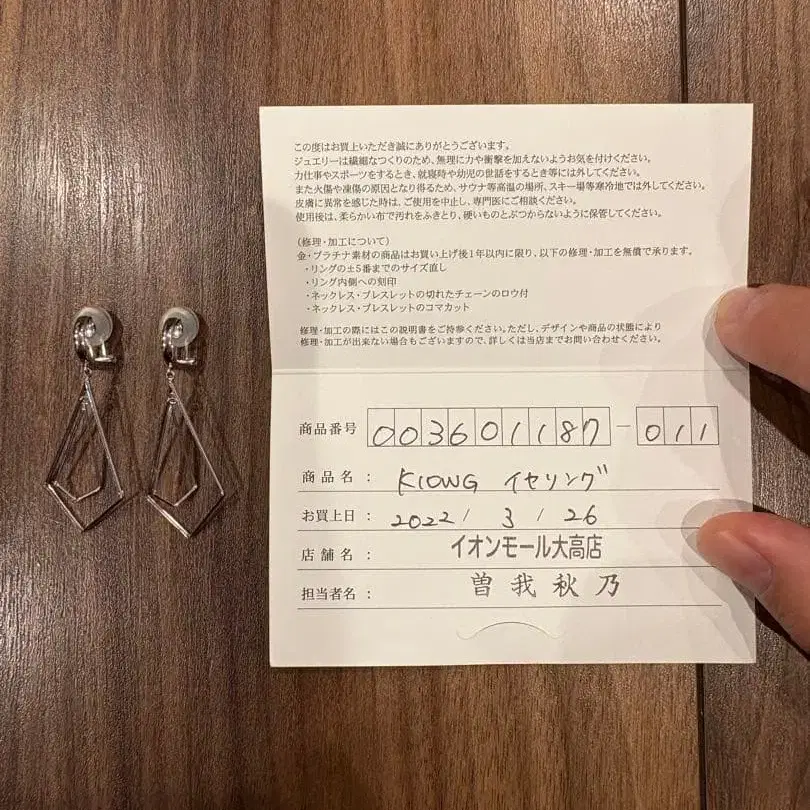 この度はお買上いただき誠にありがとうございます。
ジュエリーは繊細なつくりのため、無理に力や衝撃を加えないようお気を付けください。
力仕事やスポーツをするとき、就寝時や幼児の世話をするとき等には外してください。
また火傷や凍傷の原因となり得るため、サウナ等高温の場所、スキー場等寒冷地では外してください。
皮膚に異常を感じた時は、ご使用を中止し、専門医にご相談ください。
使用後は、柔らかい布で汚れをふきとり、硬いものとぶつからないように保管してください。
(修理・加工について)
金・プラチナ素材の商品はお買い上げ後1年以内に限り、以下の修理・加工を無償で承ります。
・リングの±5番までのサイズ直し
・リング内側への刻印
・ネックレス・ブレスレットの切れたチェーンのロウ付
・ネックレス・ブレスレットのコマカット
修理・加工の際にはこの説明書をご持参ください。ただし、デザインや商品の状態により
修理・加工が出来ない場合もございますので、詳しくは当店までお問い合わせください。
商品番号 003601187-011
商品名: K10WG イヤリング
お買上日: 2022/3/26
店舗名: イオンモール大高店
担当者名: 曽我秋乃